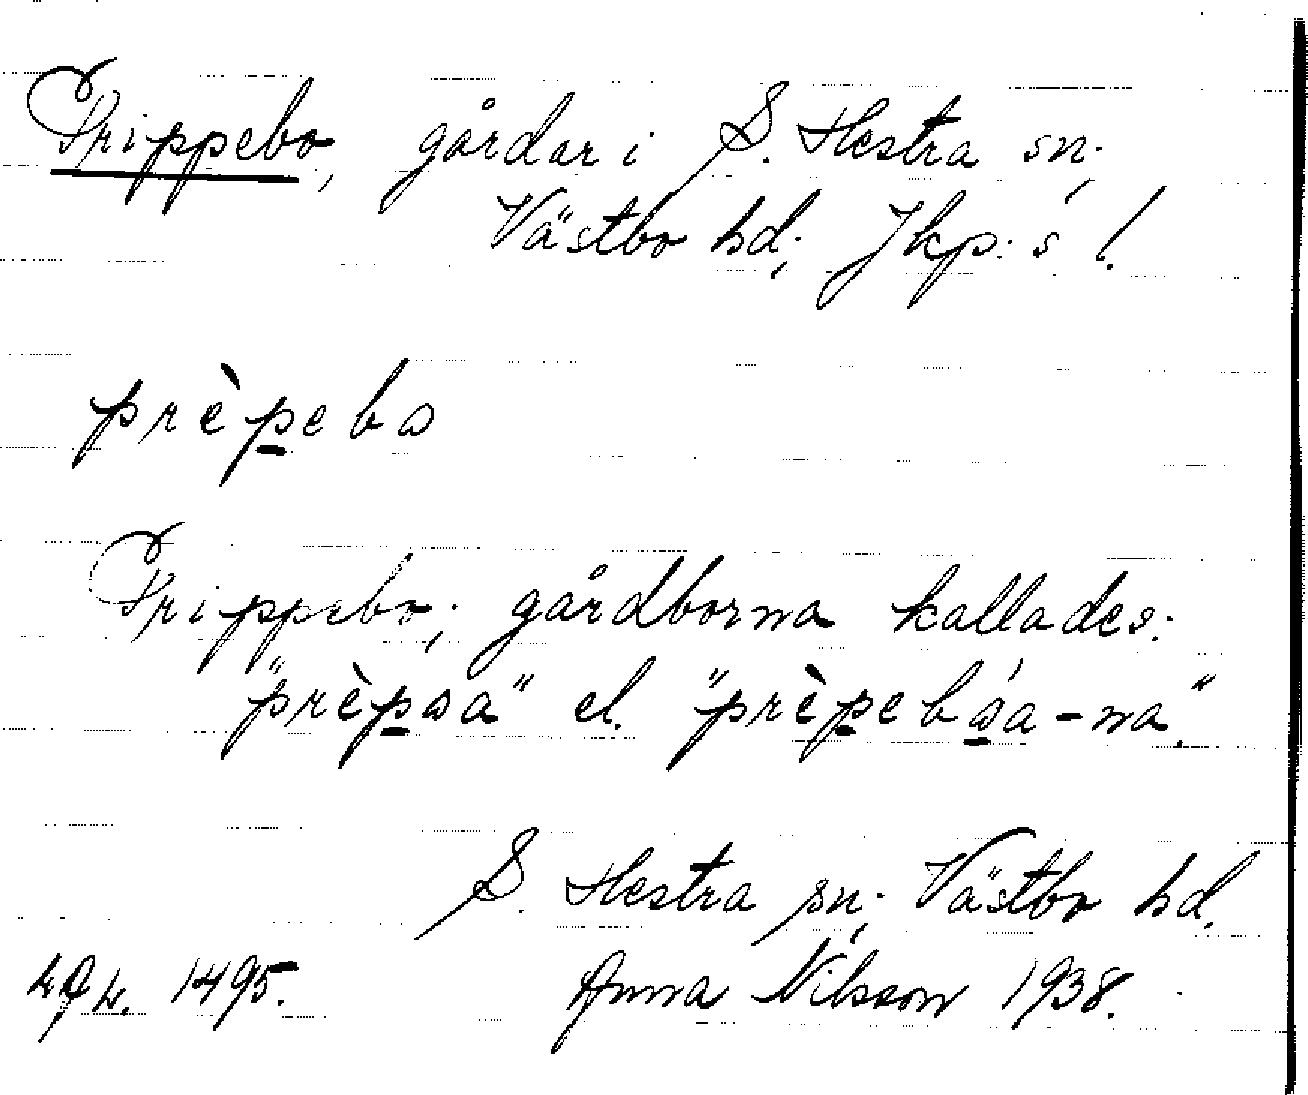 Prippebo, gårdar i S. Hestra sn;
Västbo hd; Jkp: s l.
prèpebo
Prippebo; gårdborna kallades:
"prèpsa" el. "prèpebósa-na".
S. Hestra sn; Västbo hd.
1495. Anna Nilsson 1938.